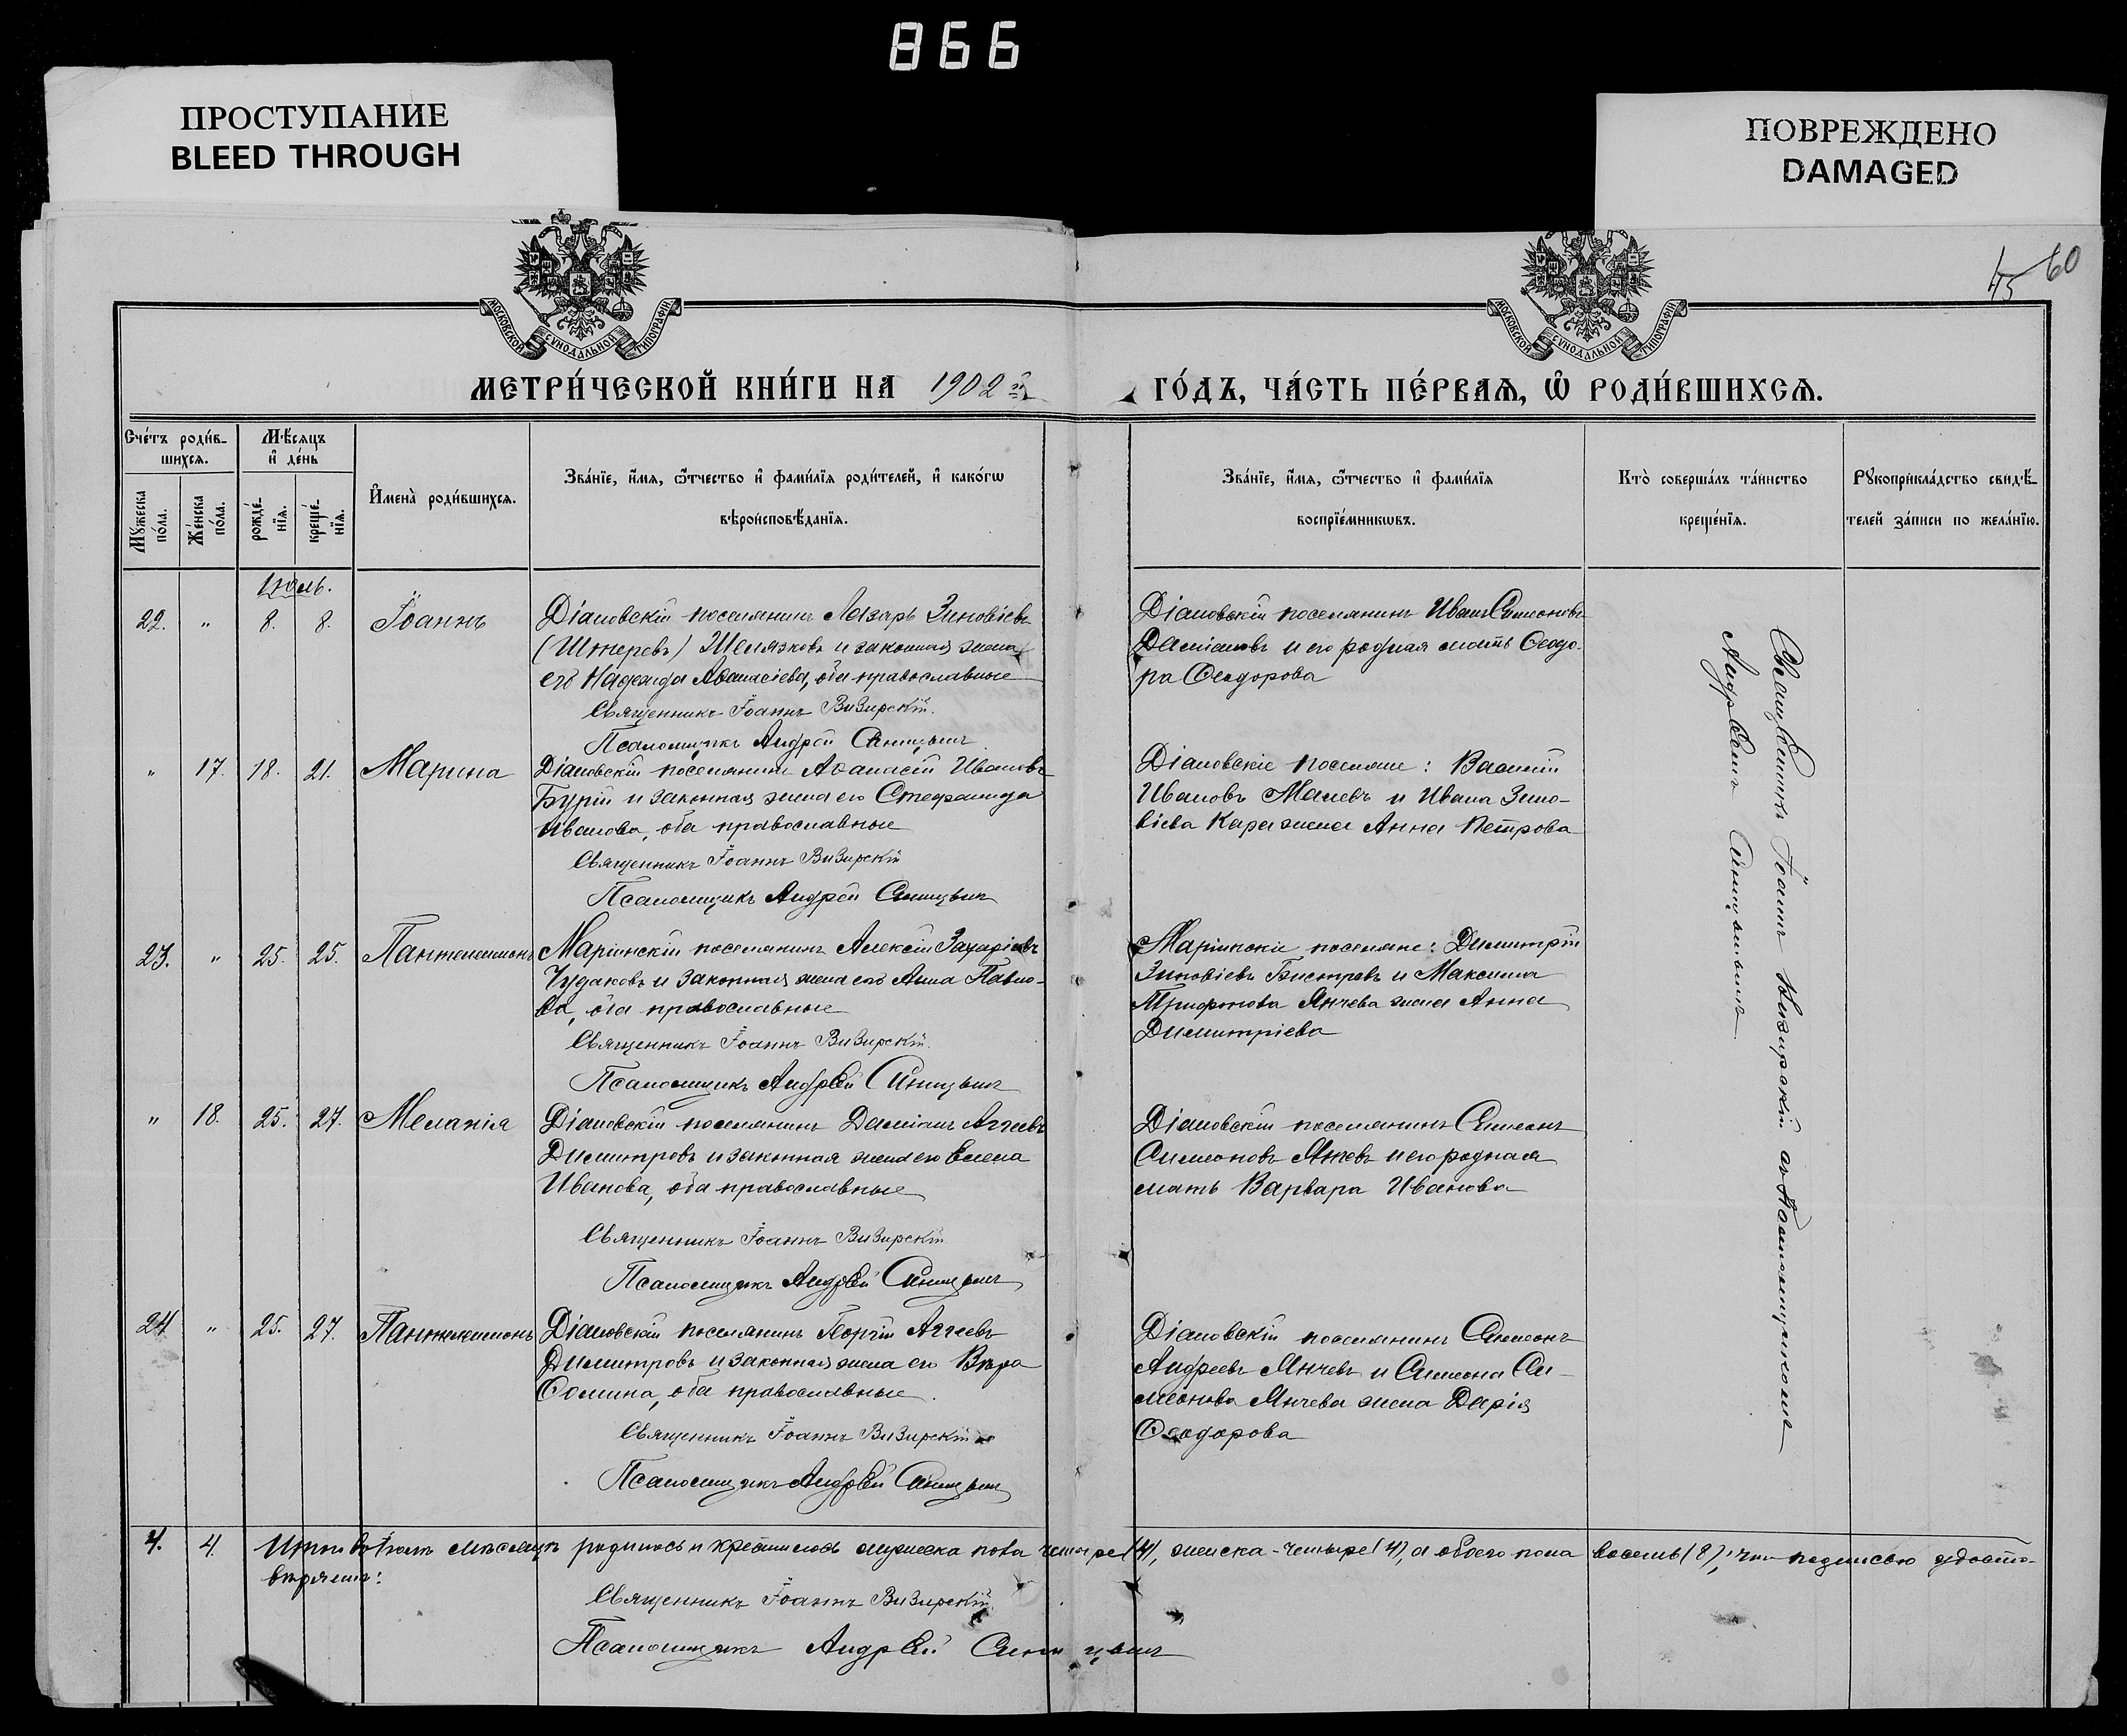 866
ПРОСТУПАНИЕ
BLEED THROUGH
ПОВРЕЖДЕНО
DAMAGED
60
45
МОСКОВСКОЙ СѴНОДАЛЬНОЙ ТИПОГРАФІИ
МОСКОВСКОЙ СѴНОДАЛЬНОЙ ТИПОГРАФІИ
МЕТРИ́ЧЕСКОЙ КНИ́ГИ НА 1902й ГО́ДЪ, ЧА́СТЬ ПЕ́РВАѦ, Ѡ РОДИ́ВШИХСѦ.
Сче́тъ роди́в-
шихсѧ.
Мѣ́сѧцъ
и де́нь
Мꙋжеска
по́ла.
Же́нска
по́ла.
рожде́-
нїѧ.
креще́-
нїѧ.
Имена̀ роди́вшихсѧ.
Зва́нїе, и́мѧ, ѻ́тчество и фами́лїѧ роди́телей, и како́гѡ
вѣроисповѣ́данїѧ.
Зва́нїе, и́мѧ, ѻ́тчество и фами́лїѧ
воспрїе́мникѡвъ.
Кто̀ соверша́лъ та́инство
креще́нїѧ.
Рꙋкоприкла́дство свидѣ́-
телей за́писи по жела́нїю.
Іюль.
22. " 8. 8. Іоаннъ
Діановскій поселянинъ Лазарь Зиновіевъ
(Штеревъ) Шелязковъ и законная жена
его Надежда Аѳанасіева, оба православные
Священникъ Іоаннъ Визирскій.
Псаломщикъ Андрей Синицынъ
Діановскій поселянинъ Иванъ Симеоновъ
Даміановъ и его родная мать Ѳеодо-
ра Ѳеодорова
" 17. 18. 21. Марина
Діановскій поселянинъ Аѳанасій Ивановъ
Бурій и законная жена его Стефанида
Иванова, оба православные
Священникъ Іоаннъ Визирскій
Псаломщикъ Андрей Синицынъ
Діановскіе поселяне: Василій
Ивановъ Малевъ и Ивана Зино-
віева Кара жена Анна Петрова
23. " 25. 25. Пантелеимонъ
Маріинскій поселянинъ Алексій Захаріевъ
Чудаковъ и законная жена его Анна Павло-
ва, оба православные
Священникъ Іоаннъ Визирскій.
Псаломщикъ Андрей Синицынъ
Маріинскіе поселяне: Димитрій
Зиновіевъ Бистревъ и Максима
Трифонова Янчева жена Анна
Димитріева
" 18. 25. 27. Меланія
Діановскій поселянинъ Даміанъ Аггеевъ
Димитровъ и законная жена его Елена
Иванова, оба православные
Священникъ Іоаннъ Визирскій
Псаломщикъ Андрей Синицынъ
Діановскій поселянинъ Симеонъ
Симеоновъ Янчевъ и его родная
мать Варвара Иванова
24 " 25. 27. Пантелеимонъ
Діановскій поселянинъ Георгій Аггеевъ
Димитровъ и законная жена его Вѣра
Ѳомина, оба православные.
Священникъ Іоаннъ Визирскій
Псаломщикъ Андрей Синицынъ
Діановскій поселянинъ Симеонъ
Андреевъ Янчевъ и Симеона Си-
меонова Янчева жена Дарія
Ѳеодорова
Священникъ Іоаннъ Визирскій съ Псаломщикомъ
Андреемъ Синицынымъ
4. 4. Итого въ Іюлѣ мѣсяцѣ родилось и крестилось мужеска пола четыре (4), женска - четыре (4), а обоего пола восемь (8); что подписью удосто-
вѣряемъ:
Священникъ Іоаннъ Визирскій
Псаломщикъ Андрей Синицынъ